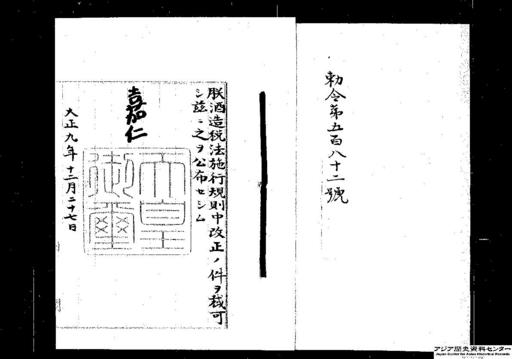 勅令第五百八十二號
朕酒造税法施行規則中改正ノ件ヲ裁可
シ茲ニ之ヲ公布セシム
嘉仁
天皇
御璽
大正九年十二月二十七日
アジア歴史資料センター
Japan Center for Asian Historical Records